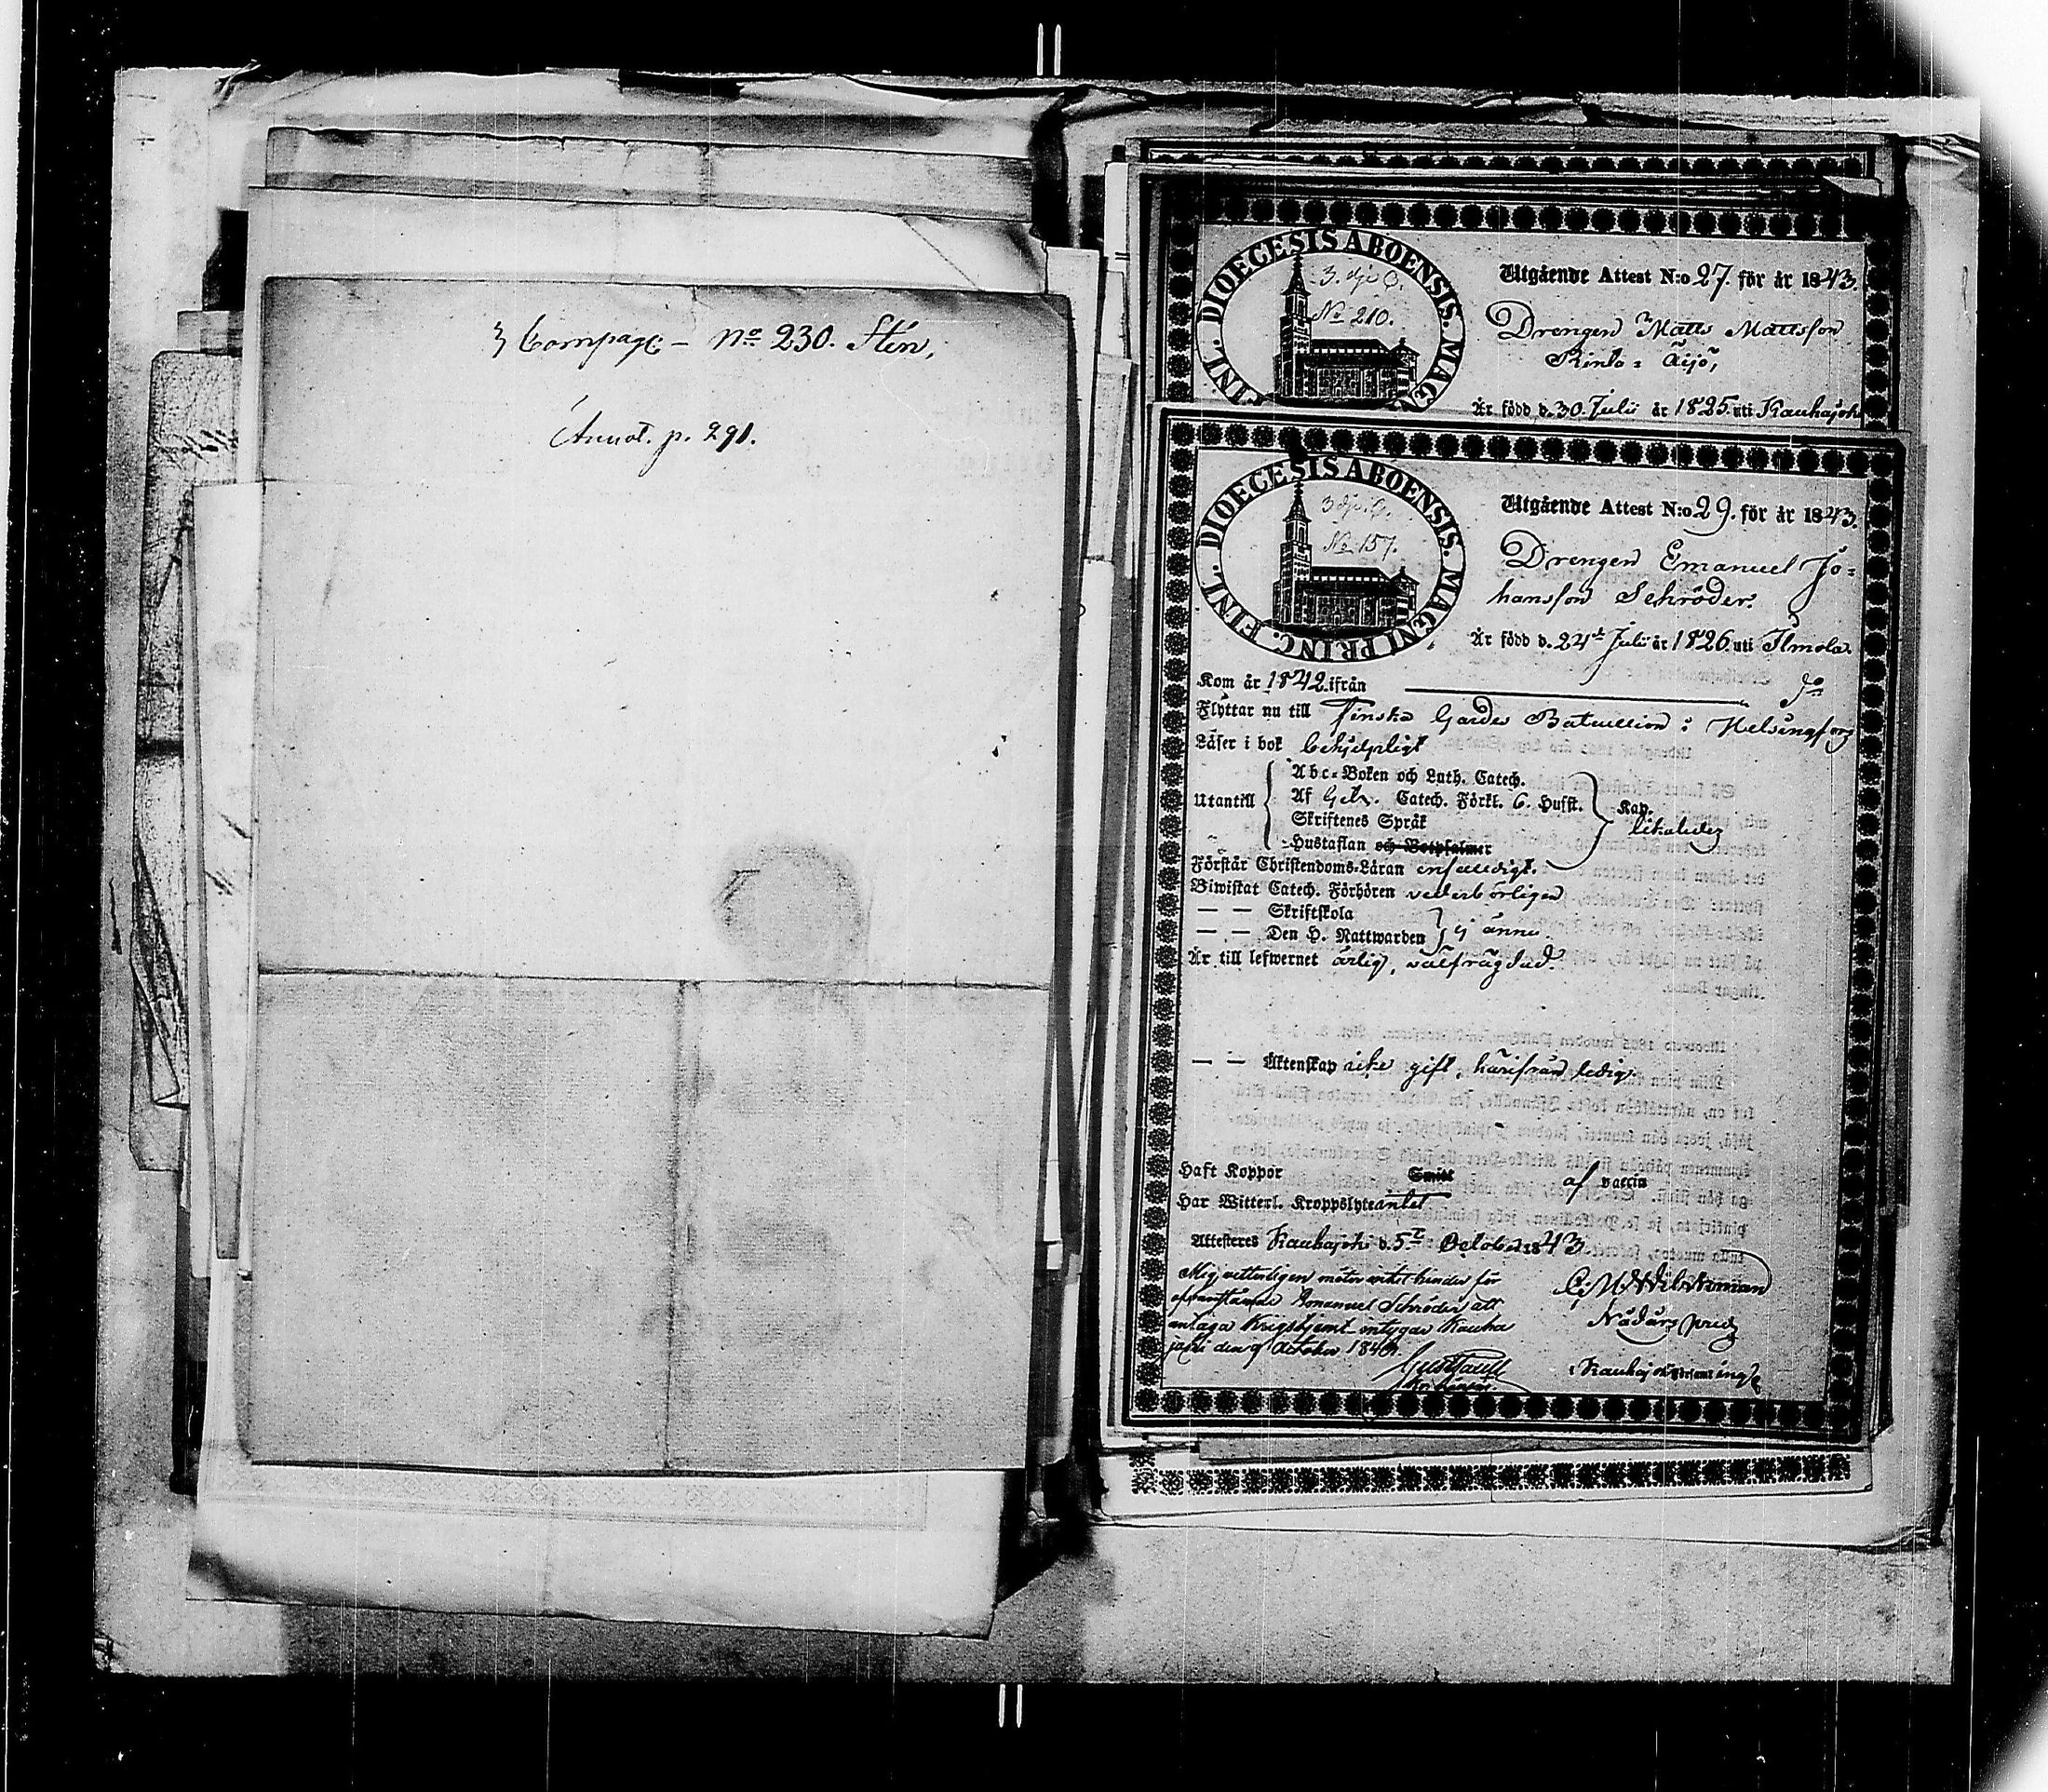 3 Compagc - No 230. Stén,
Annot. p. 291.
FINL. DIOECESIS ABOENSIS. MAGN
3 dje C.
No 210.
Utgående Attest N:o 27. för år 1843.
Drengen Matts Mattsson
Rinta= Äijö,
Är född d. 30. Julii år 1825. uti Kauhajoki
FINL. DIOECESIS ABOENSIS. MAGNI PRINC.
3 dje C.
No 157.
Utgående Attest N:o 29. för år 1843.
Drengen Emanuel Jo=
hansson Schröder.
Är född d. 24de Julii år 1826. uti Ilmola
Kom år 1842. ifrån do
Flyttar nu till Finska Gardes Bataillion i Helsingfors
Läser i bok behjelpligt
Utantill
Abc-Boken och Luth. Catech.
Af Catech. Förkl. 6. Hufst.
Skriftenes Språk
Hustaflan och Botpsalmer
Kap. likaledes
Förstår Christendoms-Läran enfaldigt.
Biwistat Catech. Förhören vederbörligen
— — Skriftskola
— — Den H. Nattwarden
ej ännu.
Är till lefwernet ärlig, välfrägdad.
— — Äktenskap icke gift, härifrån ledig.
Haft Koppor Smitt af vaccin
Har Witterl. Kroppslyte intet
Attesteres Kauhajoki d. 5te October 1843
Mig vetterligen möter intet hinder för
ofvanstående Emanuel Schröder att
antaga Krigstjenst intygar Kauha
joki den 9 October 1843.
Nådårs pred
i Kauhajoki församling